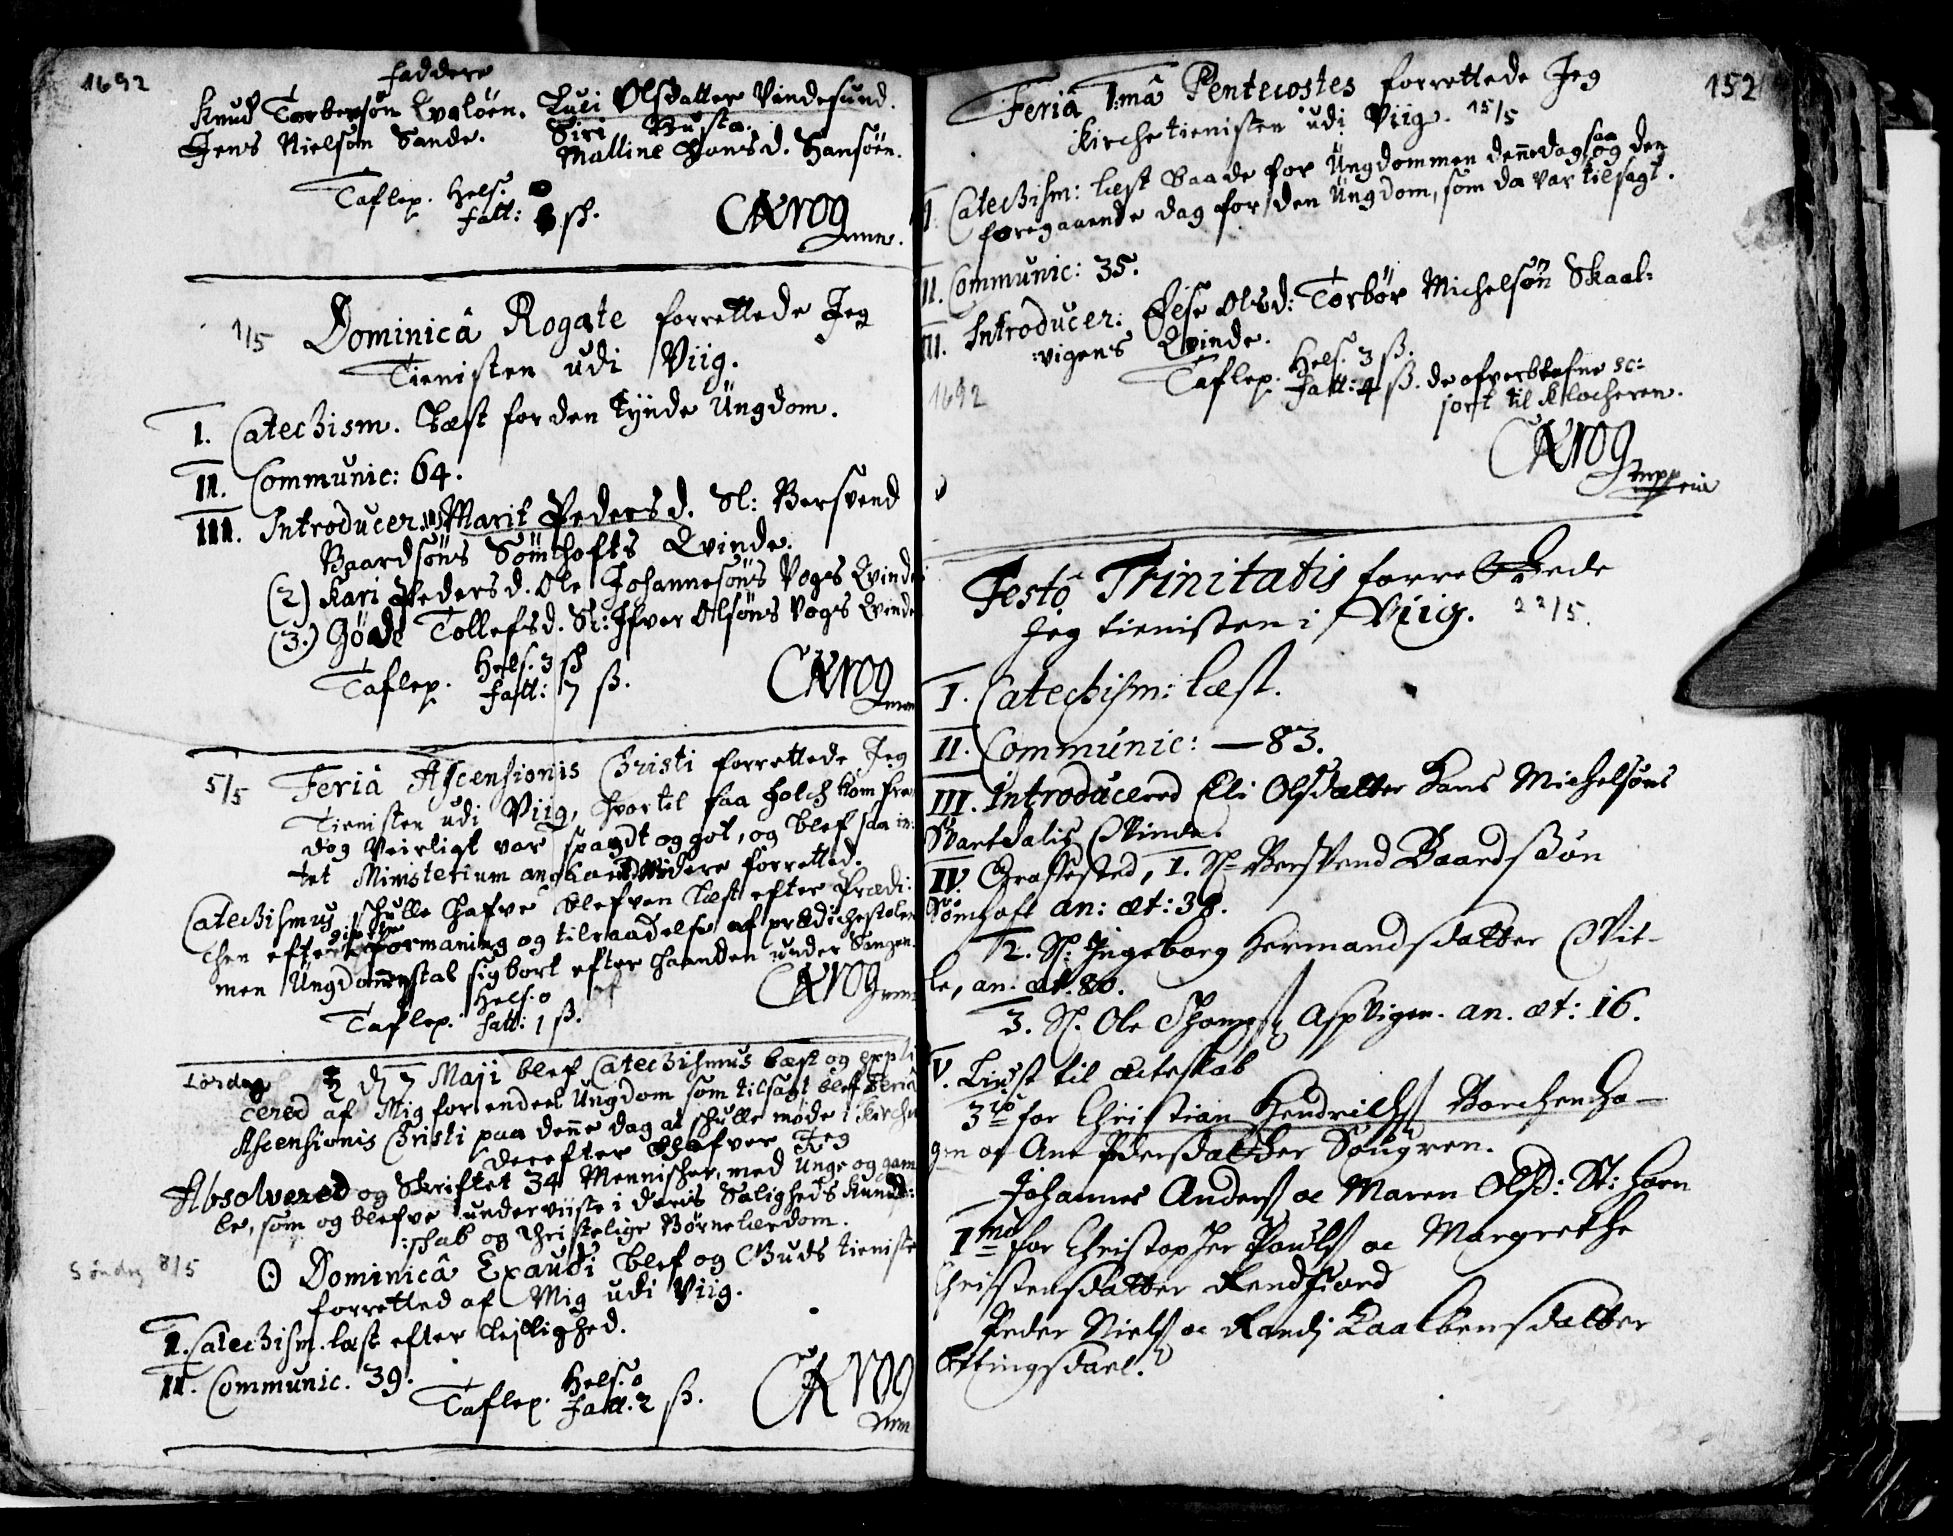 1692
faddere
Knud Torbersøn Qvaløen. Luci Olsdatter Vindesund.
Jens Nielsøn Sande. Siri Husta.
Malline Hansd. Hansøen.
Taflep. Hels. 0
fatt: ß.
CKrog
1/5 Dominicâ Rogate forrettede Jeg
Tienisten udi Viig.
I. Catechism. Læst for den Tynde Ungdom.
II. Communic: 64.
III. Introducer. (1) Marit Pedersd. Sl: Bersvend
Baardsøns Sømthofts Qvinde.
(2) Kari Pedersd. Ole Johannesøns Vogs Qvinde
(3.) Gøade Tollefsd. Sl: Ifver Olsøns Vogs Qvinde
Taflep. Hels. 3 ß
fatt: 7 ß.
CKrog
5/5 Feriâ Ascensionis Christi forrettede Jeg
Tienisten udi Viig, hvortil faa folch kom fra
dog Veirligt var spagdt og got, og blef saa in:
tet Ministerium videre forretted.
Catechismus schulle hafve blefven læst efter Prædi:
chen efter formaning og tilraadelse af prædichestolen
men Ungdommen stal sig bort efter haanden under Sangen.
CKrog
Taflep. Hels. 0
fatt: 1 ß.
Lørdag ♄ d 7 Maji blef Catechismus læst og expli
cered af Mig for endeel Ungdom som tilsagt blef Feriâ
Ascensionis Christi paa denne dag at schulle møde i Kirchen
derefter blefver Jeg
Absolvered og Skriftet 34 Mennischer, med Unge og gam
le, som og blefve underviiste i deris Saligheds Kund:
:schab og Christelige Børnelærdom.
Søndag 8/5 ☉ Dominicâ Exaudi blef og Guds tieniste
forretted af Mig udi Viig.
I. Catechism. læst efter Lejlighed.
II. Communic. 39.
Taflep. Hels. 0
fatt. 2 ß.
CKrog
152
Feriâ 1mâ Pentecostes forrettede Jeg
Kirchetienisten udi Viig. 15/5
I. Catechism: læst baade for Ungdommen denne dag saa og den
foregaaende dag for den Ungdom, som da var tilsagt.
II. Communic: 35.
III. Introducer: Æse Olsd: Torbør Michelsøn Skaal:
:vigens Qvinde.
1692
Taflep. Hels. 3 ß.
fatt: 4 ß. de ofverblefne
til Klocheren.
CKrog
Festo Trinitatis forrettede
Jeg tienisten i Viig. 22/5.
I. Catechism: læst.
II. Communic: — 83.
III. Introducered Eli Olsdatter Hans Michelsøns
Svartdalis Qvinde.
IV. Graffested, 1. Sl. Bersvend Baardssøn
Sømhoft an: æt: 38.
2. Sl. Ingeborg Hermandsdatter Vit-
le, an. æt. 80.
3. Sl. Ole Thomæs. Aspvigen. an. æt: 16.
V. Liust til ecteskab
3io for Christian Hendrichs. Borchenha-
gen oc Ane Pedersdatter Søugren.
Johannes Anders. oc Maren Olsd: St: Horn
1mo for Christopher Pouls. oc Margrethe
Christensdatter Rendfiord
Peder Niels. oc Randj Kaalbensdatter
Ottingsdael.